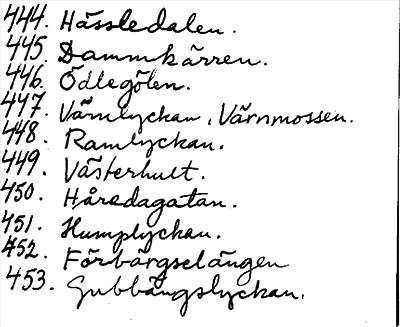 444. Hässledalen.
445. Dammkärren.
446. Ödlegölen.
447. Värnlyckan, Värnmossen.
448. Ramlyckan.
449. Västerhult.
450. Häradagatan.
451. Humplyckan.
452. Förbärgselängen
453. Gubbängslyckan.